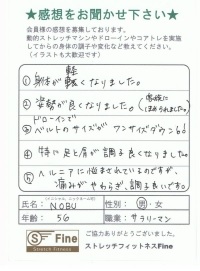 ★感想をお聞かせ下さい★
会員様の感想を募集しております。
動的ストレッチマシンやドローインやコアトレを実施
してからの身体の調子や変化など教えてください。
(イラストも大歓迎です)
① 身体が軽くなりました。
② 姿勢が良くなりました。(家族にほめられました。)
ドローインで
③ ベルトのサイズがワンサイズダウン
④ 特に足と肩が調子良くなりました
⑤ ヘルニアに悩まされているのですが、
痛みがやわらぎ、調子良いです。
氏名:NOBU 男・女
年齢:56 職業:サラリーマン
ご協力ありがとうございました。
S Fine
Stretch Fitness
ストレッチフィットネスFine